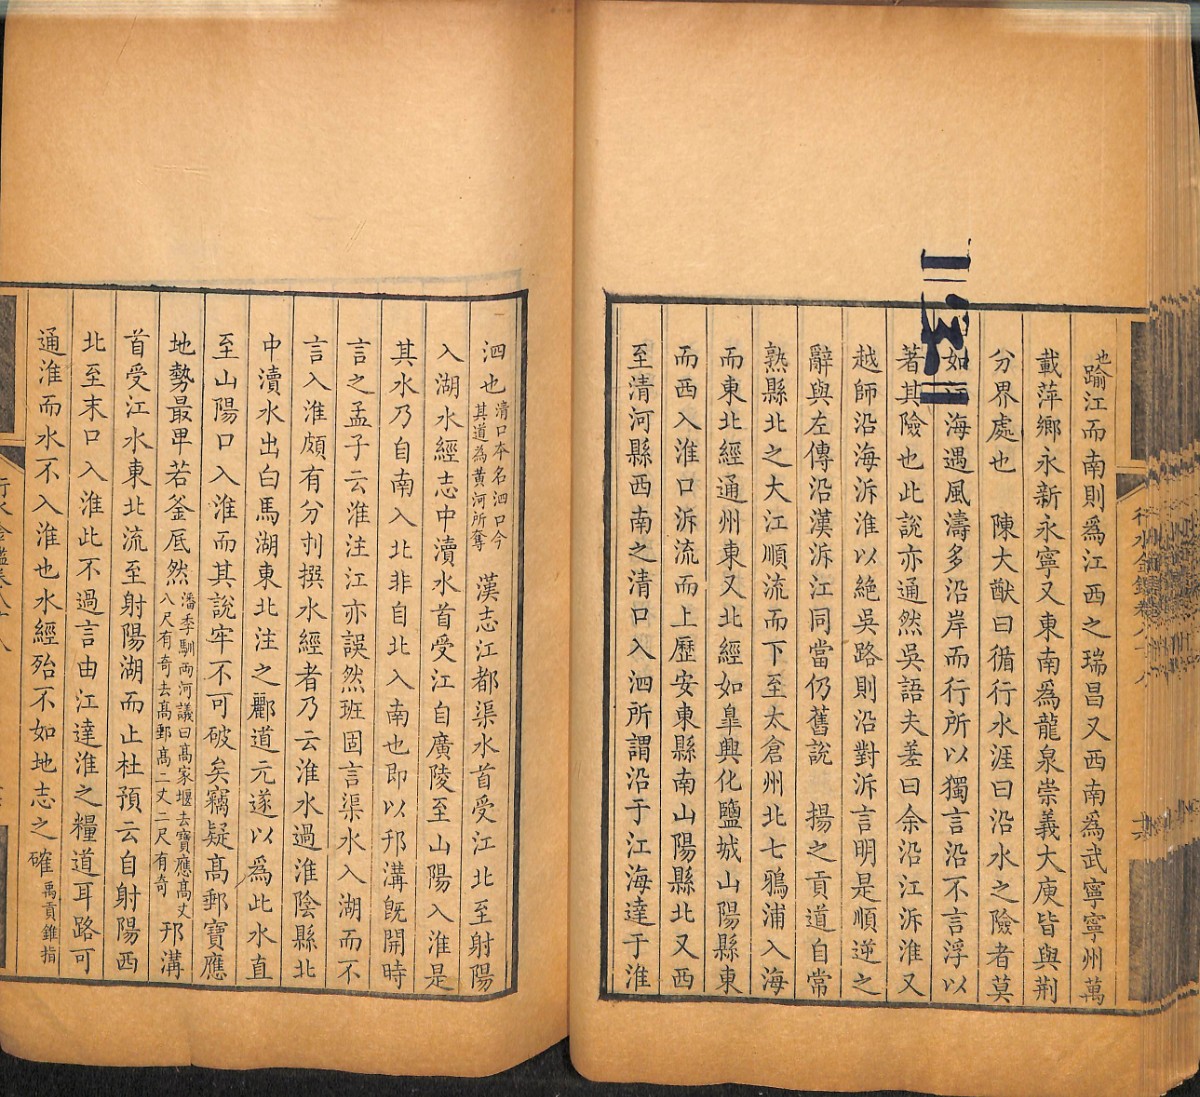 也踰江而南則爲江西之瑞昌又西南爲武寧寧州萬
載萍鄉永新永寧又東南爲龍泉崇義大庾皆與荆
分界處也　陳大猷曰循行水涯曰沿水之險者莫
如　海遇風濤多沿岸而行所以獨言沿不言浮以
著其險也此說亦通然吳語夫差曰余沿江泝淮又
越師沿海泝淮以絶吳路則沿對泝言明是順逆之
辭與左傳沿漢泝江同當仍舊說　揚之貢道自常
熟縣北之大江順流而下至太倉州北七鴉浦入海
而東北經通州東又北經如臯興化鹽城山陽縣東
而西入淮口泝流而上歷安東縣南山陽縣北又西
至清河縣西南之清口入泗所謂沿于江海達于淮
泗也清口本名泗口今其道為黄河所奪　漢志江都渠水首受江北至射陽
入湖水經志中瀆水首受江自廣陵至山陽入淮是
其水乃自南入北非自北入南也即以邗溝旣開時
言之孟子云淮注江亦誤然班固言渠水入湖而不
言入淮頗有分刌撰水經者乃云淮水過淮陰縣北
中瀆水出白馬湖東北注之酈道元遂以爲此水直
至山陽口入淮而其說牢不可破矣竊疑高郵寶應
地勢最卑若釜底然潘季馴兩河議曰高家堰去寶應高丈八尺有奇去高郵高二丈二尺有奇　邗溝
首受江水東北流至射陽湖而止杜預云自射陽西
北至末口入淮此不過言由江達淮之糧道耳路可
通淮而水不入淮也水經殆不如地志之確禹貢錐指
行水金鑑卷八十八